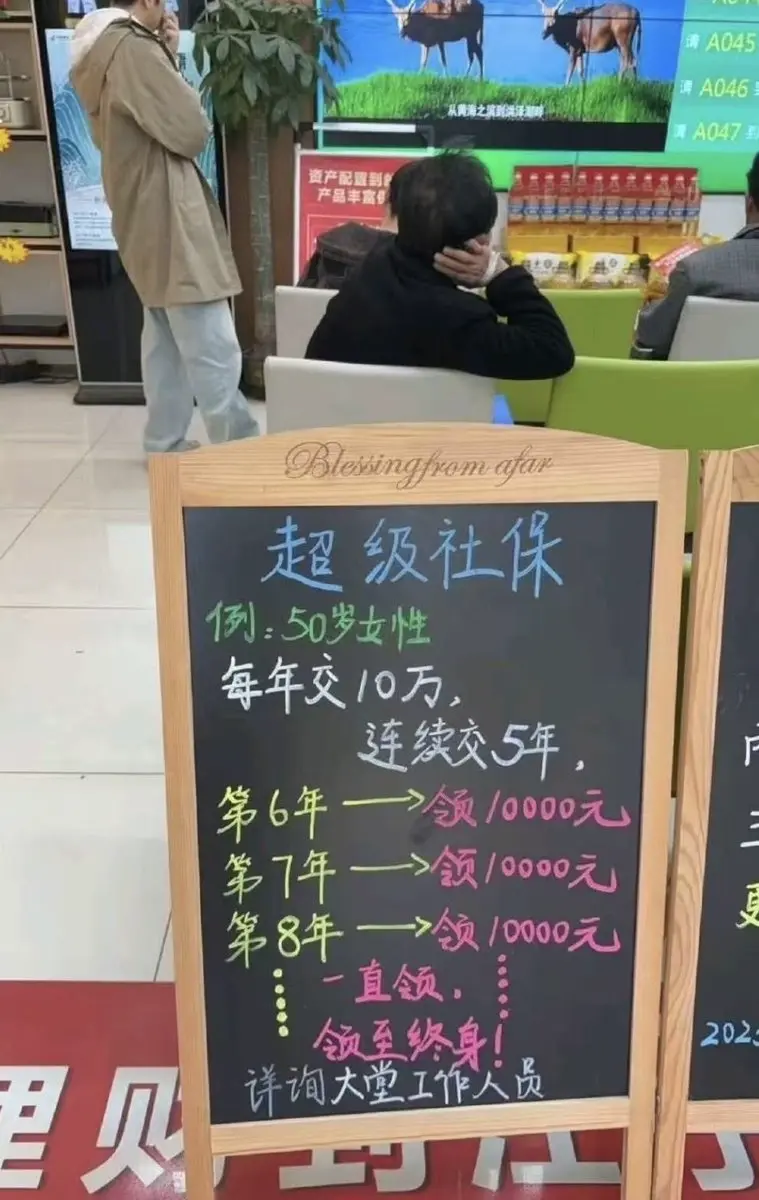 从黄海之滨到洪泽湖畔
请 A045
请 A046 到
请 A047 到
资产配置到
产品丰富
Blessing from afar
超级社保
例:50岁女性
每年交10万,
连续交5年,
第6年→领10000元
第7年→领10000元
第8年→领10000元
一直领,
领至终身!
详询大堂工作人员
三
更
202
理财到江